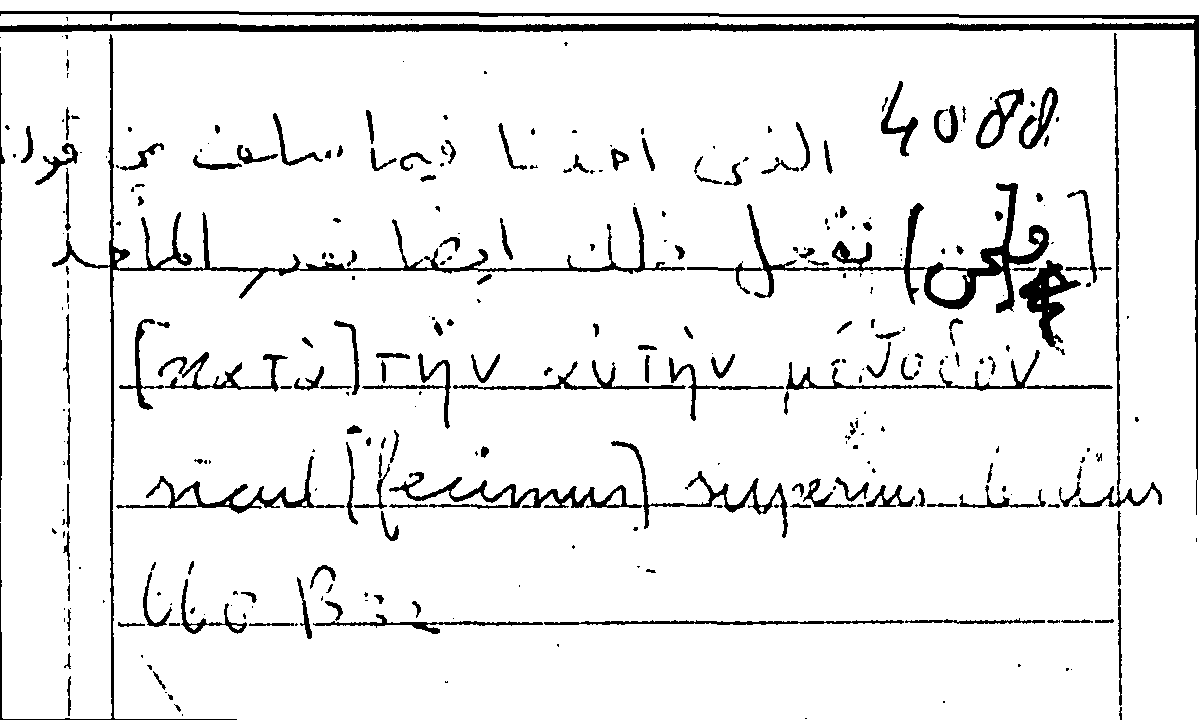 4088 الذى اخذنا فيما سلف من قولنا
[فـ[ـنحن] نفعل ذلك ايضا بقدر المأخذ
[κατὰ] τὴν αὐτὴν μέθοδον
sicut [fecimus] superius
660 B 32